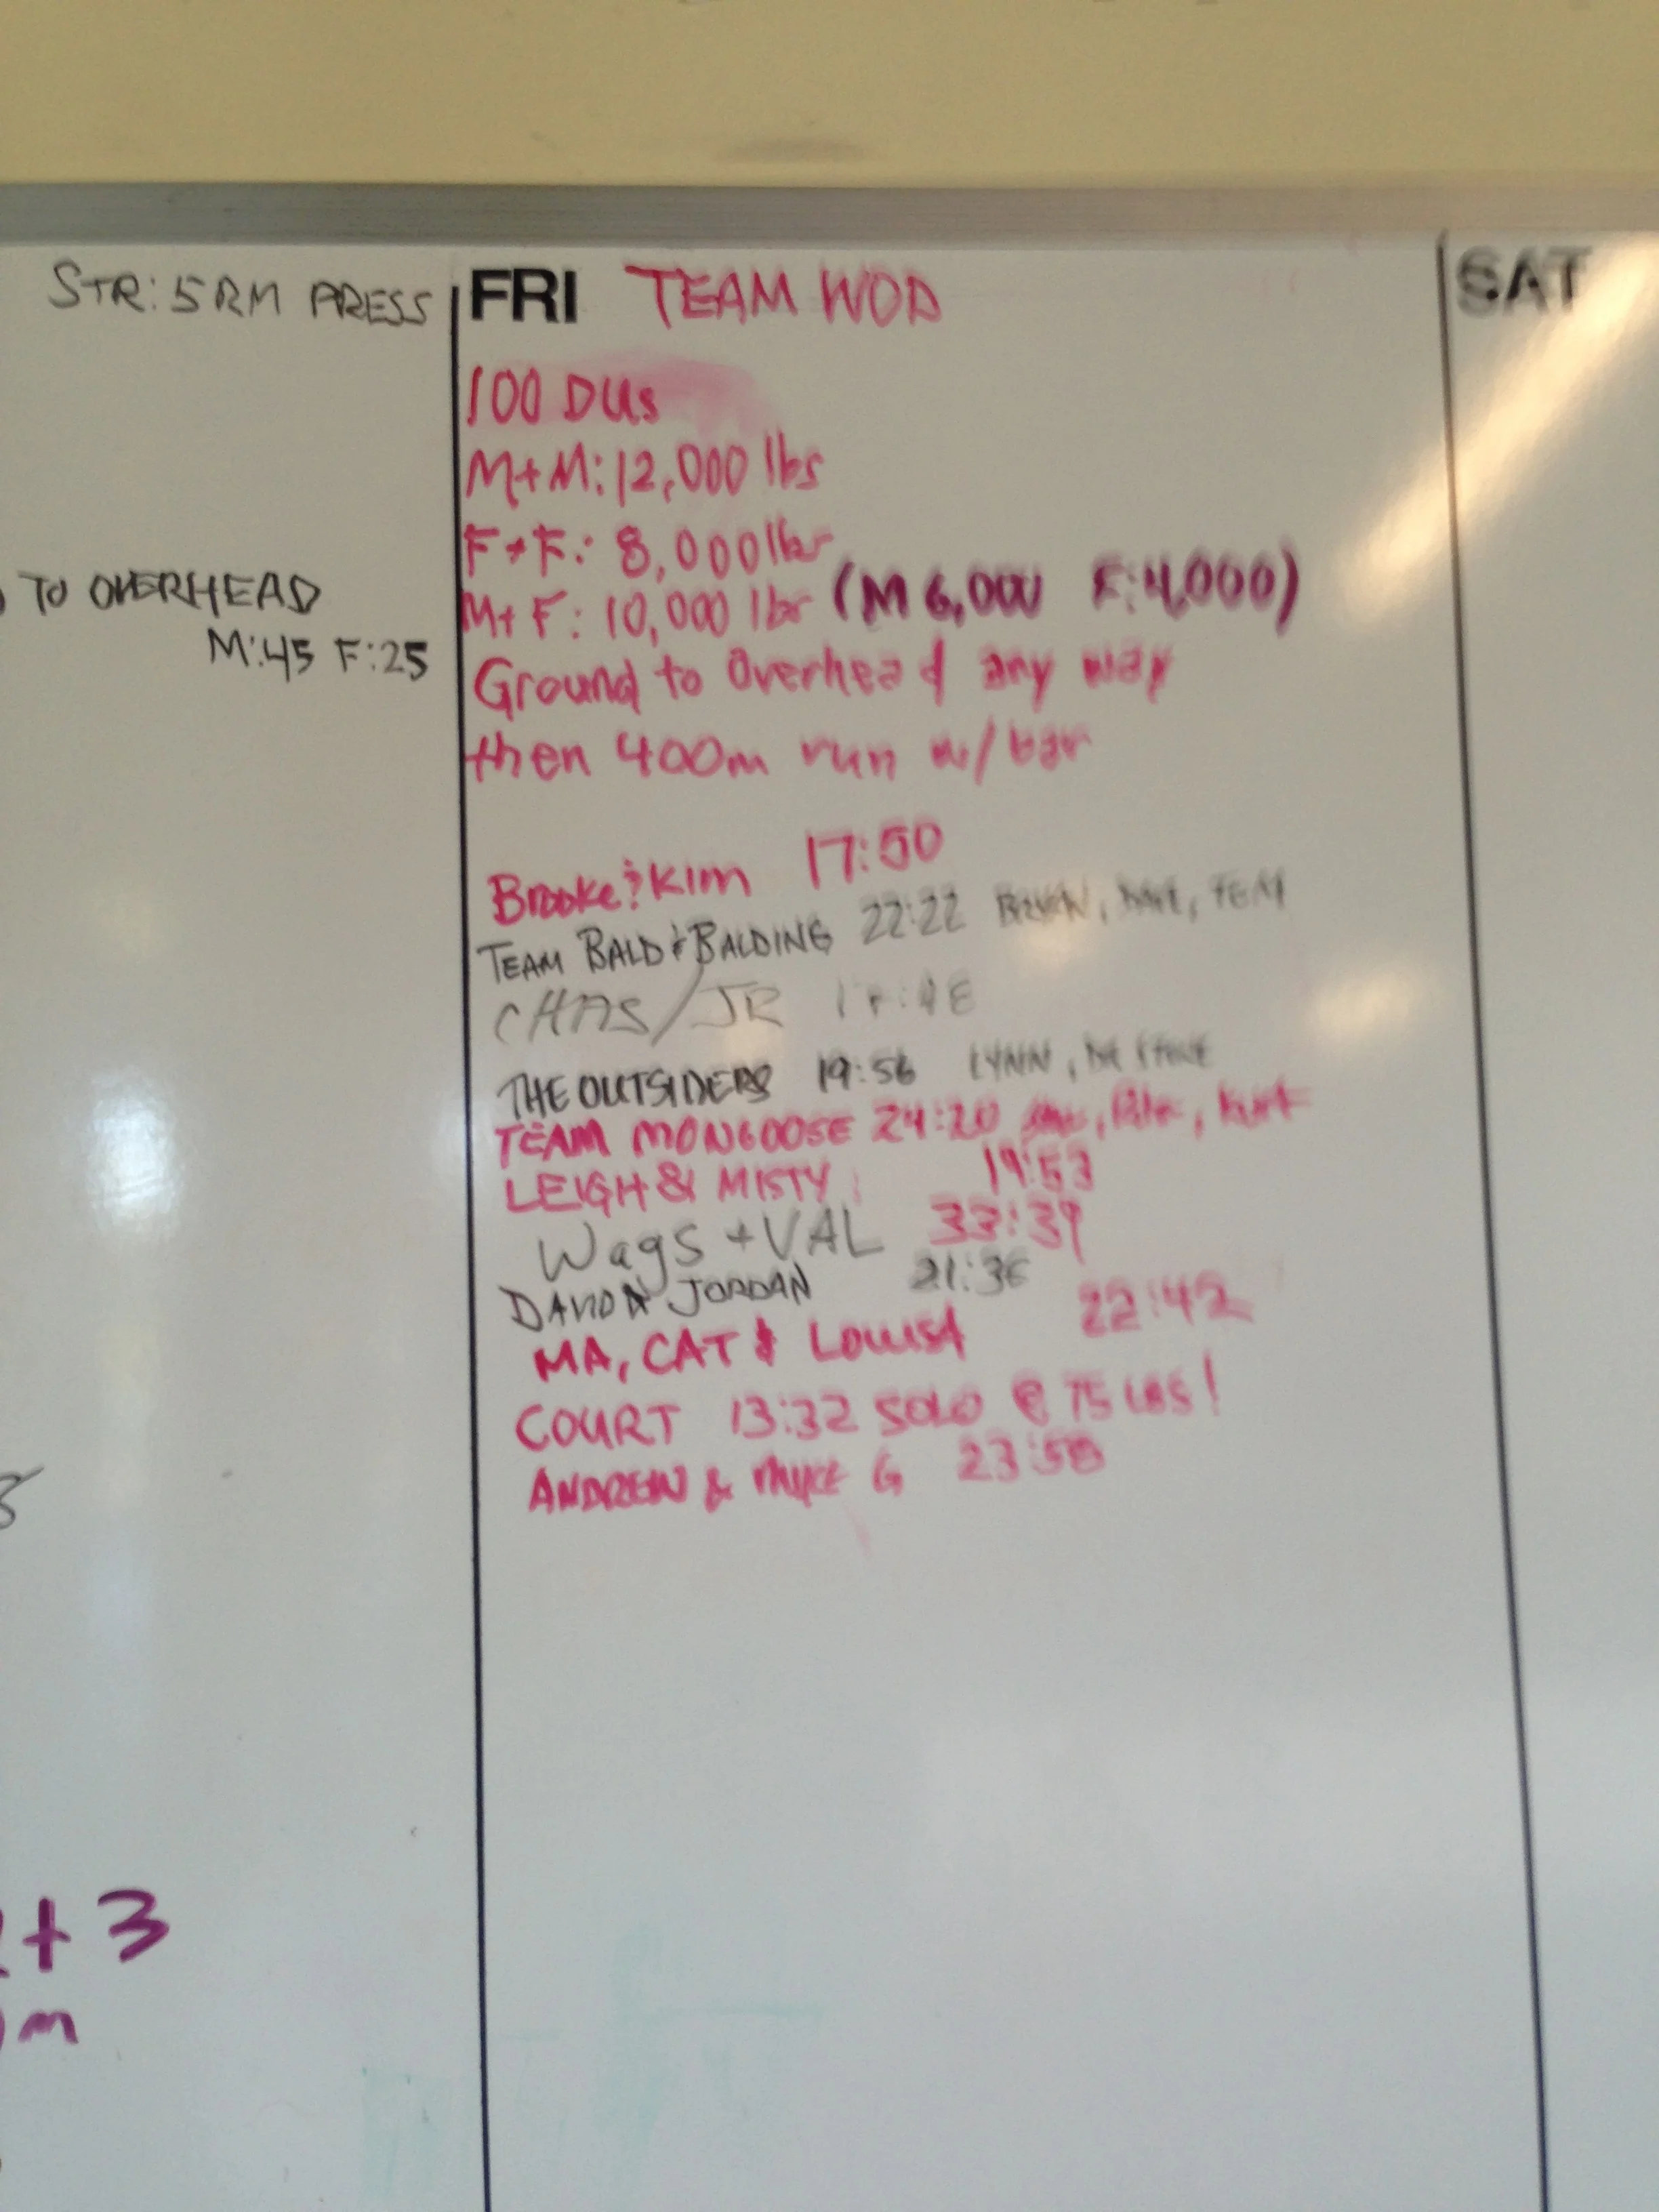 STR: 5 RM PRESS
TO OVERHEAD
M:45 F:25
+ 3
m
FRI TEAM WOD
100 DUs
M+M: 12,000 lbs
F+F: 8,000 lbs
M+F: 10,000 lbs (M 6,000 F: 4,000)
Ground to Overhead any way
then 400m run w/ bar
Brooke & Kim 17:50
TEAM BALD & BALDING 22:22
CHAS/JR
THE OUTSIDERS 19:56 LYNN,
TEAM MONGOOSE 24:20 Kurt
LEIGH & MISTY: 19:53
Wags + VAL 33:39
DAVID JORDAN
MA, CAT & 22:42
COURT 13:32 SOLO @ 75 LBS!
ANDREW & MIKE G 23:58
SAT